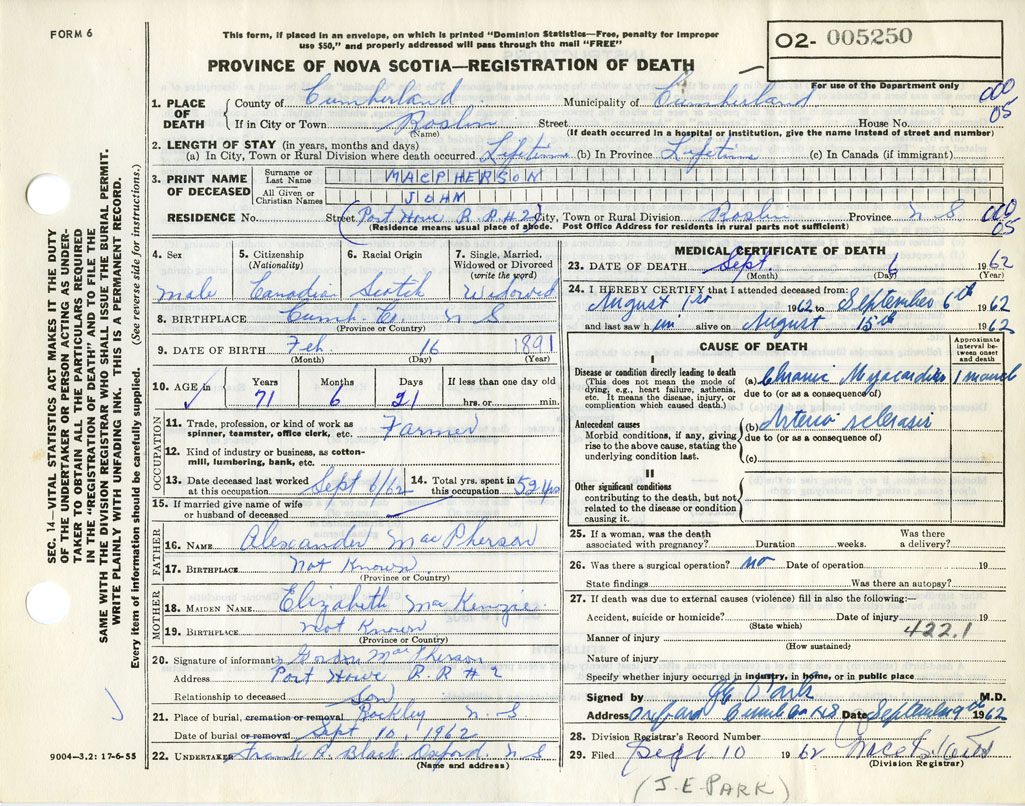 FORM 6
This form, if placed in an envelope, on which is printed "Dominion Statistics—Free, penalty for improper
use $50," and properly addressed will pass through the mail "FREE"
PROVINCE OF NOVA SCOTIA—REGISTRATION OF DEATH
O2- 005250
For use of the Department only
000
05
1. PLACE OF DEATH
County of Cumberland Municipality of Cumberland
If in City or Town Roslin Street House No.
(Name) (If death occurred in a hospital or institution, give the name instead of street and number)
2. LENGTH OF STAY (in years, months and days)
(a) In City, Town or Rural Division where death occurred Lifetime (b) In Province Lifetime (c) In Canada (if immigrant)
3. PRINT NAME OF DECEASED
Surname or Last Name MACPHERSON
All Given or Christian Names JOHM
RESIDENCE No. Street (Port Howe R.R#2) City, Town or Rural Division Roslin Province N S
(Residence means usual place of abode. Post Office Address for residents in rural parts not sufficient)
000
05
4. Sex 5. Citizenship (Nationality) 6. Racial Origin 7. Single, Married, Widowed or Divorced (write the word)
male Canadian Scotch Widowed
8. BIRTHPLACE Cumb. Co. N S
(Province or Country)
9. DATE OF BIRTH Feb 16 1891
(Month) (Day) (Year)
10. AGE in Years Months Days If less than one day old
71 6 21 hrs. or min.
OCCUPATION
11. Trade, profession, or kind of work as spinner, teamster, office clerk, etc. Farmer
12. Kind of industry or business, as cotton-mill, lumbering, bank, etc.
13. Date deceased last worked at this occupation Sept 6/62 14. Total yrs. spent in this occupation 52 yrs
15. If married give name of wife or husband of deceased
FATHER
16. NAME Alexander MacPherson
17. BIRTHPLACE Not Known
(Province or Country)
MOTHER
18. MAIDEN NAME Elizabeth MacKenzie
19. BIRTHPLACE Not Known
(Province or Country)
20. Signature of informant Gordon MacPherson
Address Port Howe R.R # 2
Relationship to deceased Son
21. Place of burial, cremation or removal Rockley N. S
Date of burial or removal Sept 10, 1962
22. UNDERTAKER Frank R. Black Oxford, N S
(Name and address)
MEDICAL CERTIFICATE OF DEATH
23. DATE OF DEATH Sept. 6 1962
(Month) (Day) (Year)
24. I HEREBY CERTIFY that I attended deceased from:
August 1st 1962 to September 6th 1962
and last saw him alive on August 15th 1962
CAUSE OF DEATH
Approximate interval between onset and death
I
Disease or condition directly leading to death
(This does not mean the mode of dying, e.g., heart failure, asthenia, etc. It means the disease, injury, or complication which caused death.)
(a) Chronic Myocarditis 1 month
due to (or as a consequence of)
Antecedent causes
Morbid conditions, if any, giving rise to the above cause, stating the underlying condition last.
(b) Arterio sclerosis
due to (or as a consequence of)
(c)
II
Other significant conditions
contributing to the death, but not related to the disease or condition causing it.
25. If a woman, was the death associated with pregnancy? Duration weeks. Was there a delivery?
26. Was there a surgical operation? no Date of operation 19
State findings Was there an autopsy?
27. If death was due to external causes (violence) fill in also the following:—
Accident, suicide or homicide? Date of injury 19
(State which) 422.1
Manner of injury
(How sustained)
Nature of injury
Specify whether injury occurred in industry, in home, or in public place
Signed by J E Park M.D.
Address Oxford Cumb Co NS Date September 9th 1962
28. Division Registrar's Record Number
29. Filed Sept 10 1962
(Division Registrar)
(J. E. PARK)
SEC. 14—VITAL STATISTICS ACT MAKES IT THE DUTY
OF THE UNDERTAKER OR PERSON ACTING AS UNDER-
TAKER TO OBTAIN ALL THE PARTICULARS REQUIRED
IN THE "REGISTRATION OF DEATH" AND TO FILE THE
SAME WITH THE DIVISION REGISTRAR WHO SHALL ISSUE THE BURIAL PERMIT.
WRITE PLAINLY WITH UNFADING INK. THIS IS A PERMANENT RECORD.
Every item of information should be carefully supplied. (See reverse side for instructions.)
9004—3.2: 17-6-55